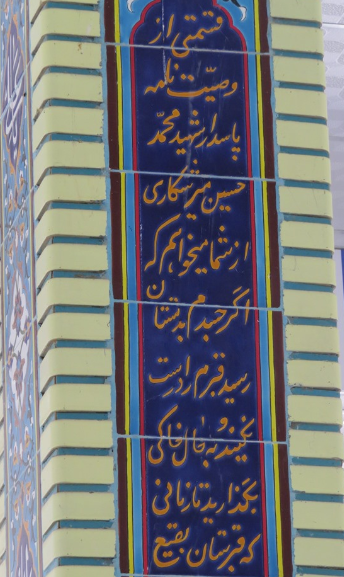 قسمتی از
وصیّت نامه
پاسدار شهید محمّد
حسین میرشکاری
از شما میخواهم که
اگر جسدم بدستتان
رسید قبرم را درست
نکنید و به حال خاکی
بگذارید تا زمانی
که قبرستان بقیع